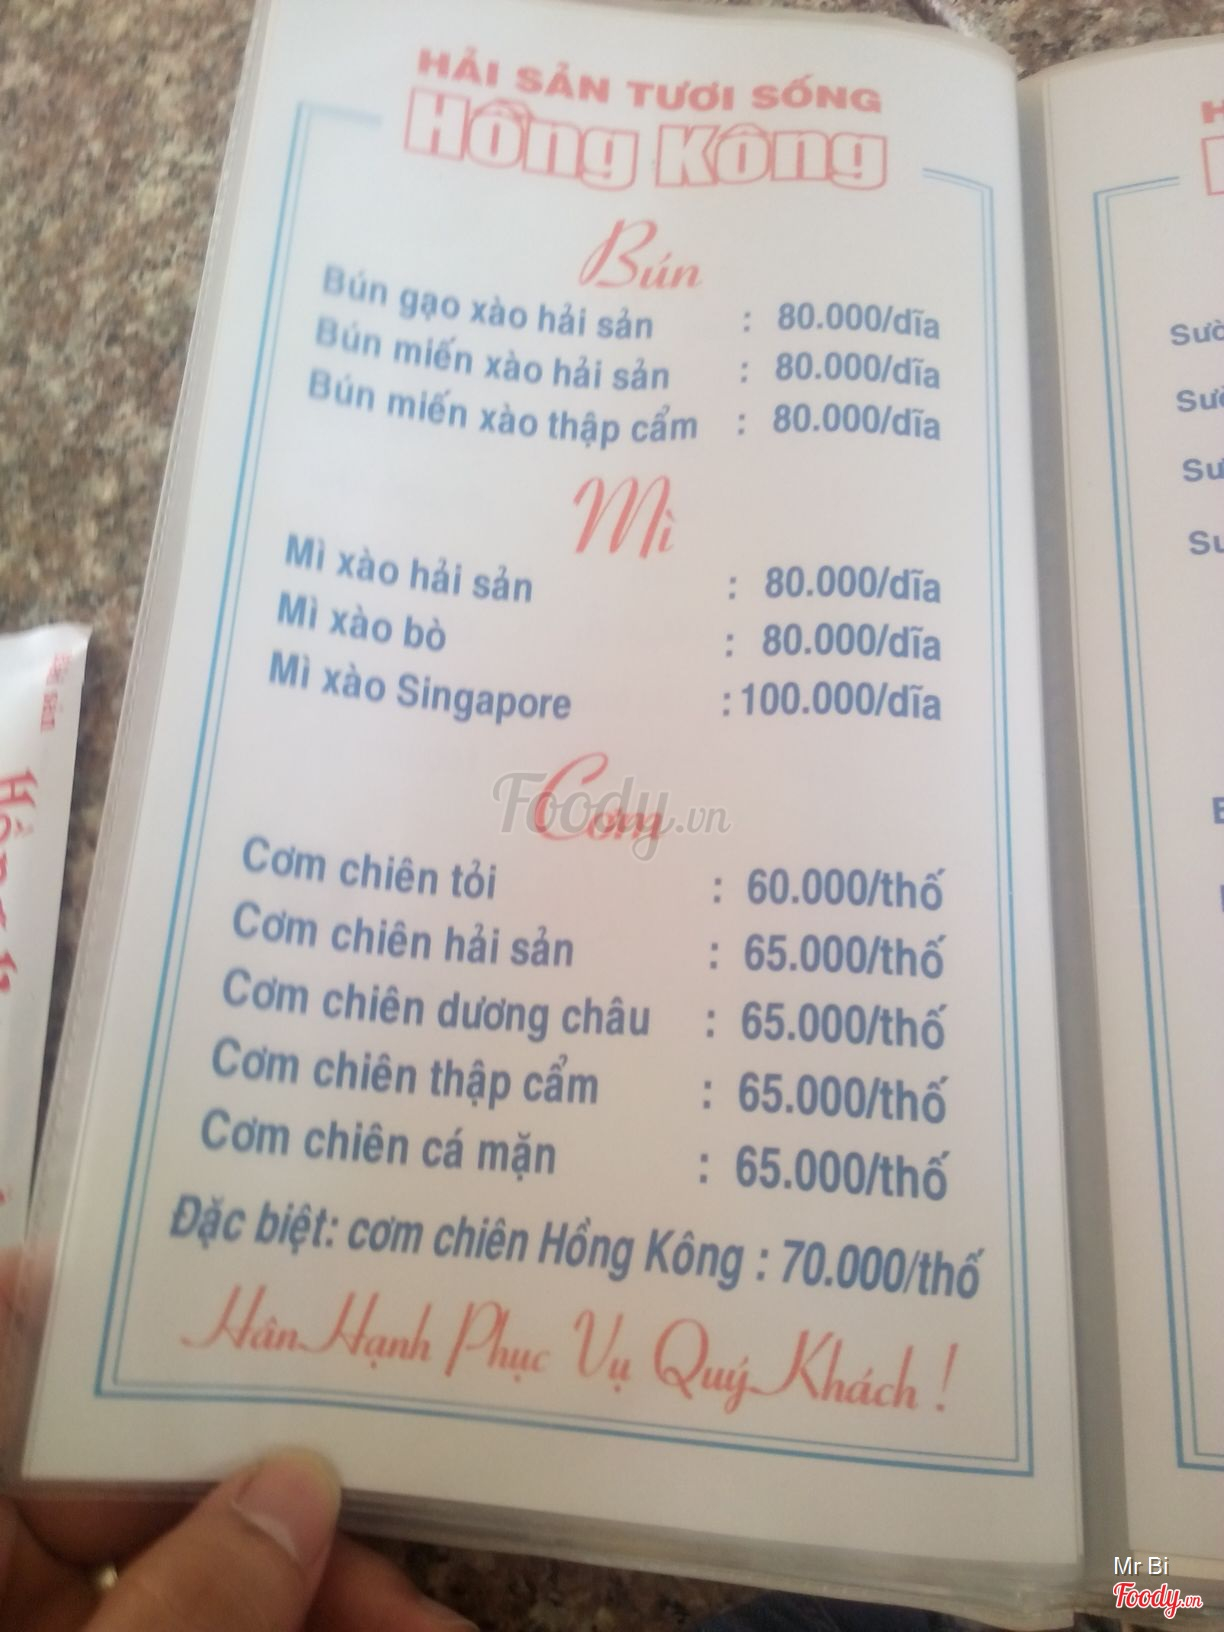 HẢI SẢN TƯƠI SỐNG
Hồng Kông
Bún
Bún gạo xào hải sản : 80.000/dĩa
Bún miến xào hải sản : 80.000/dĩa
Bún miến xào thập cẩm : 80.000/dĩa
Mì
Mì xào hải sản : 80.000/dĩa
Mì xào bò : 80.000/dĩa
Mì xào Singapore : 100.000/dĩa
Cơm
Foody.vn
Cơm chiên tỏi : 60.000/thố
Cơm chiên hải sản : 65.000/thố
Cơm chiên dương châu : 65.000/thố
Cơm chiên thập cẩm : 65.000/thố
Cơm chiên cá mặn : 65.000/thố
Đặc biệt: cơm chiên Hồng Kông : 70.000/thố
Hân Hạnh Phục Vụ Quý Khách !
Hải sản
Mr Bi
Foody.vn